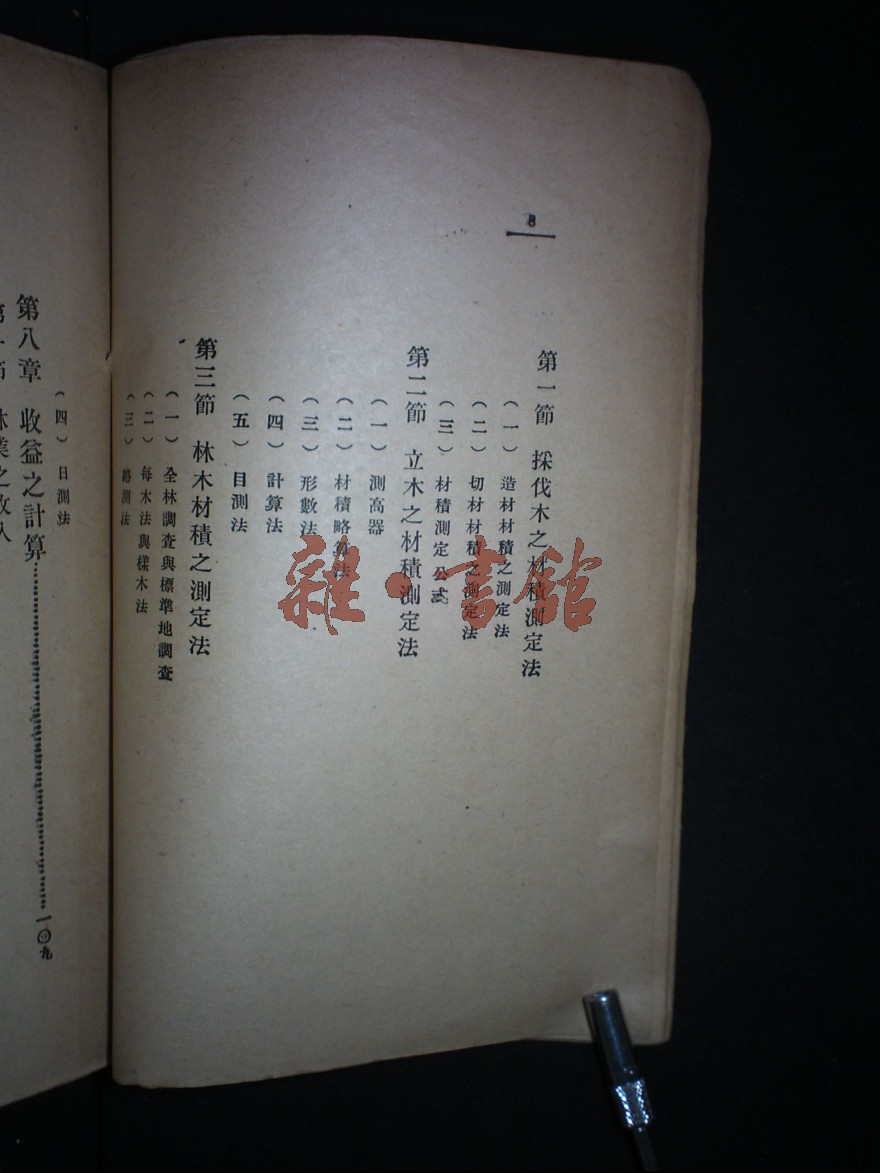 8
第一節 採伐木之材積測定法
(一) 造材材積之測定法
(二) 切材材積之測定法
(三) 材積測定公式
第二節 立木之材積測定法
(一) 測高器
(二) 材積略算法
(三) 形數法
(四) 計算法
(五) 目測法
第三節 林木材積之測定法
(一) 全林調查與標準地調查
(二) 每木法與樣木法
(三) 略測法
(四) 目測法
第八章 收益之計算……一〇九
林業之收入
雜·書館